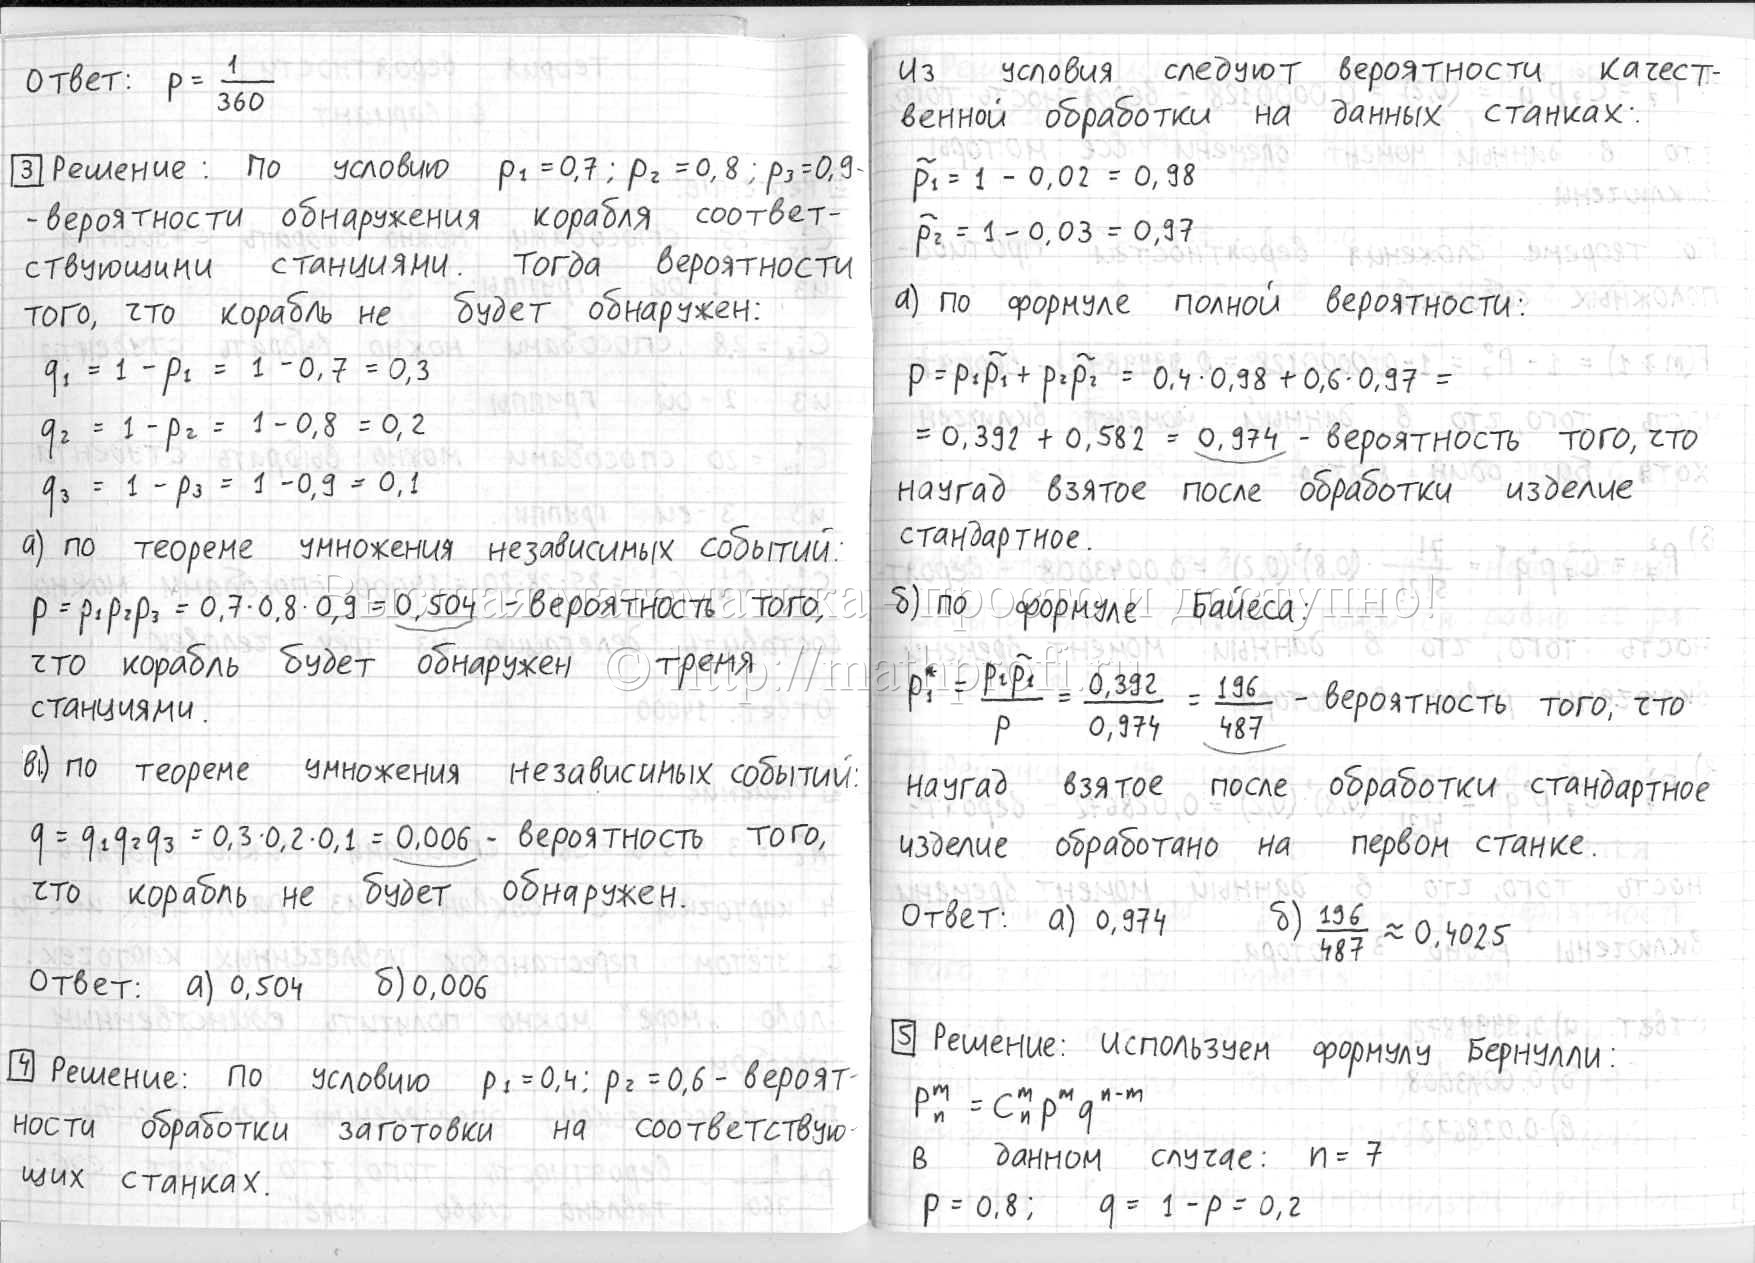 Ответ: p = 1/360
3 Решение: по условию p₁ = 0,7; p₂ = 0,8; p₃ = 0,9 -
- вероятности обнаружения корабля соответ-
ствующими станциями. Тогда вероятности
того, что корабль не будет обнаружен:
q₁ = 1 - p₁ = 1 - 0,7 = 0,3
q₂ = 1 - p₂ = 1 - 0,8 = 0,2
q₃ = 1 - p₃ = 1 - 0,9 = 0,1
а) по теореме умножения независимых событий:
p = p₁p₂p₃ = 0,7·0,8·0,9 = 0,504 - вероятность того,
что корабль будет обнаружен тремя
станциями.
в) по теореме умножения независимых событий:
q = q₁q₂q₃ = 0,3·0,2·0,1 = 0,006 - вероятность того,
что корабль не будет обнаружен.
Ответ: а) 0,504 б) 0,006
4 Решение: по условию p₁ = 0,4; p₂ = 0,6 - вероят-
ности обработки заготовки на соответствую-
щих станках.
Из условия следуют вероятности качест-
венной обработки на данных станках:
p̃₁ = 1 - 0,02 = 0,98
p̃₂ = 1 - 0,03 = 0,97
а) по формуле полной вероятности:
p = p₁p̃₁ + p₂p̃₂ = 0,4·0,98 + 0,6·0,97 =
= 0,392 + 0,582 = 0,974 - вероятность того, что
наугад взятое после обработки изделие
стандартное.
б) по формуле Байеса:
p₁* = p₁p̃₁/p = 0,392/0,974 = 196/487 - вероятность того, что
наугад взятое после обработки стандартное
изделие обработано на первом станке.
Ответ: а) 0,974 б) 196/487 ≈ 0,4025
5 Решение: Используем формулу Бернулли:
Pₙᵐ = Cₙᵐ pᵐ qⁿ⁻ᵐ
В данном случае: n = 7
p = 0,8; q = 1 - p = 0,2
Высшая математика – просто и доступно!
© http://mathprofi.ru